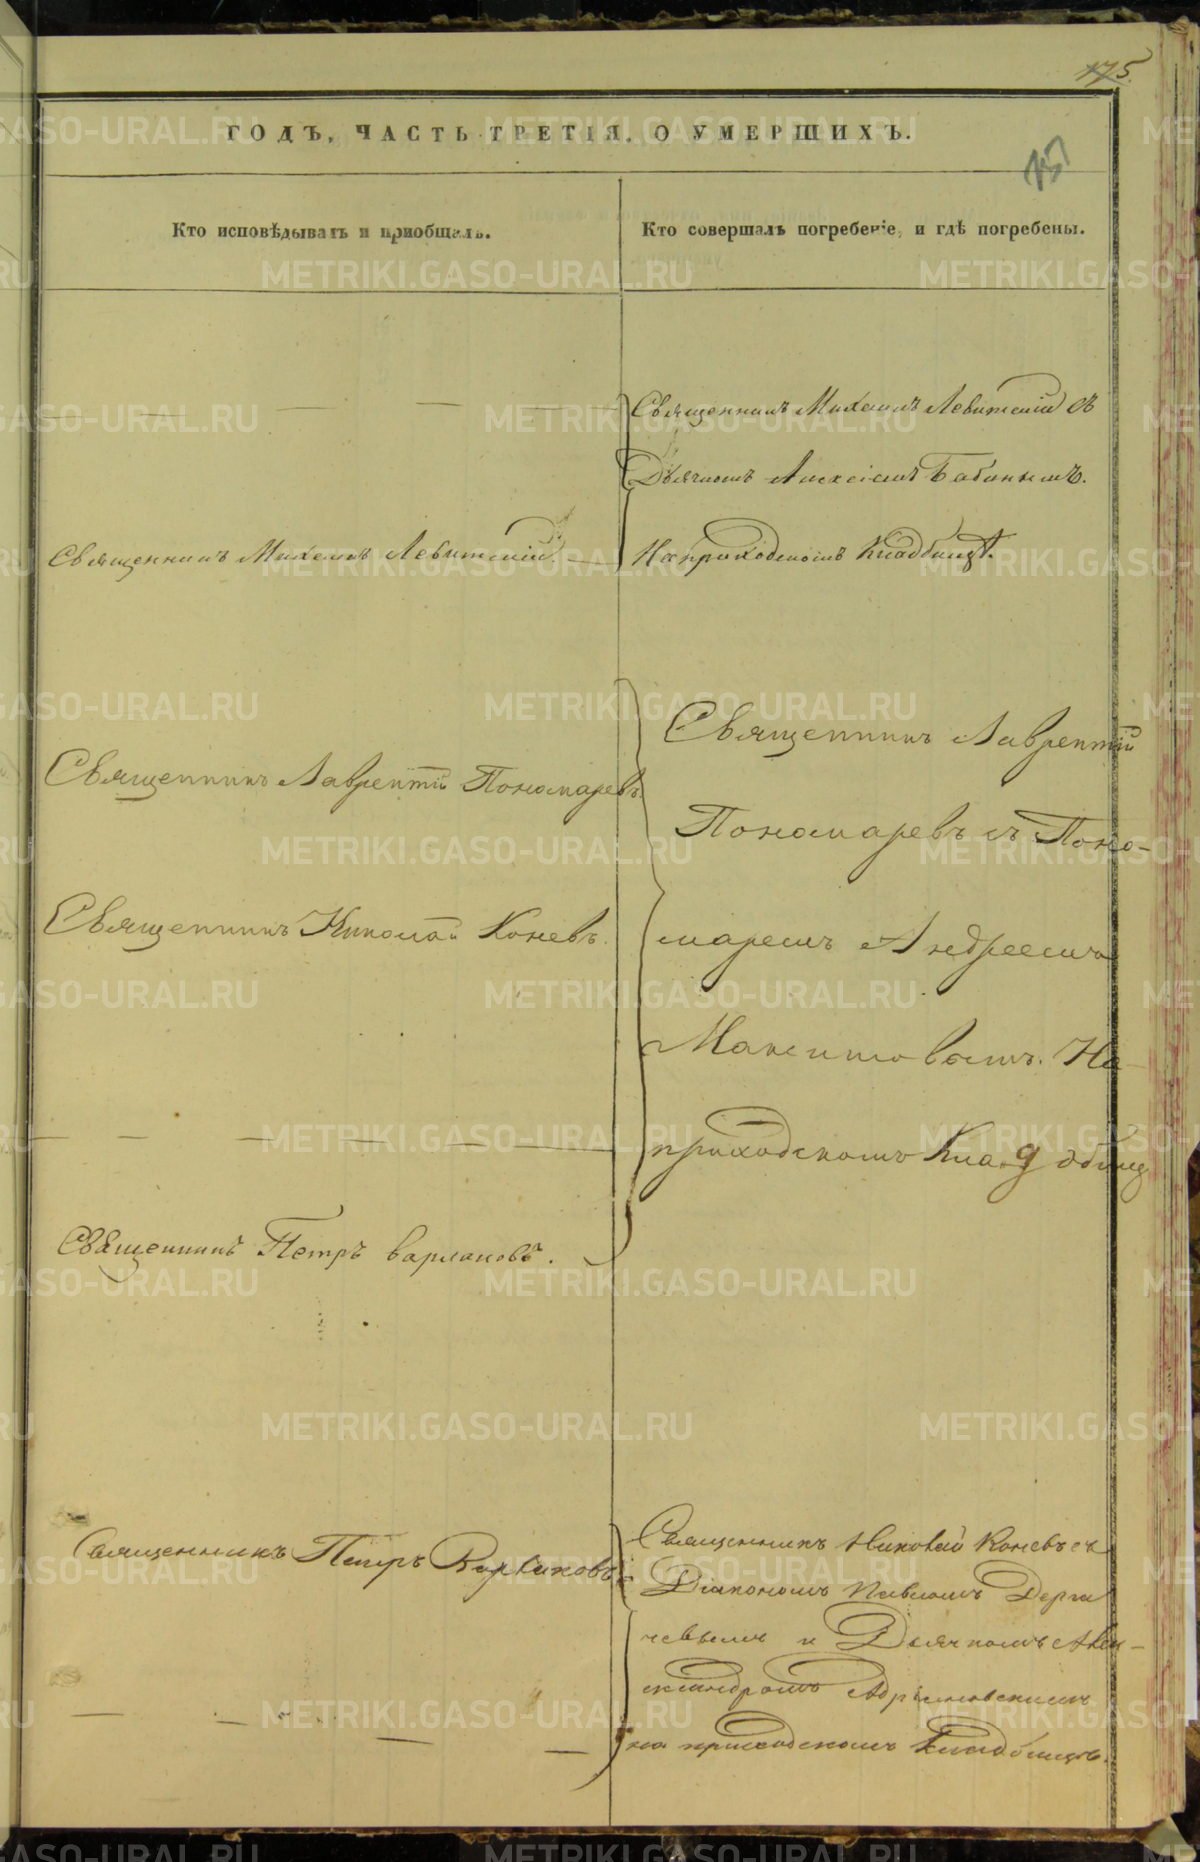 175.
ГОДЪ, ЧАСТЬ ТРЕТІЯ. О УМЕРШИХЪ.
Кто исповѣдывалъ и пріобщалъ.
Кто совершалъ погребеніе, и гдѣ погребены.
Священникъ Михаилъ Левитскій съ
Дьячкомъ Алексіемъ Бабинымъ.
Священникъ Михаилъ Левитскій.
На приходскомъ Кладбищѣ.
Священникъ Лаврентій Пономаревъ.
Священникъ Николай Коневъ.
Священникъ Петръ Варлаковъ.
Священникъ Лаврентій
Пономаревъ съ Поно-
маремъ Андреемъ
Максимовымъ. На
приходскомъ Кладбищ
Священникъ Петръ Варлаковъ
Священникъ Николай Коневъ съ
Діакономъ Павломъ Дерга
чевымъ и Дьячкомъ Алек-
сандромъ Адріановскимъ
на приходскомъ кладбищѣ.
METRIKI.GASO-URAL.RU